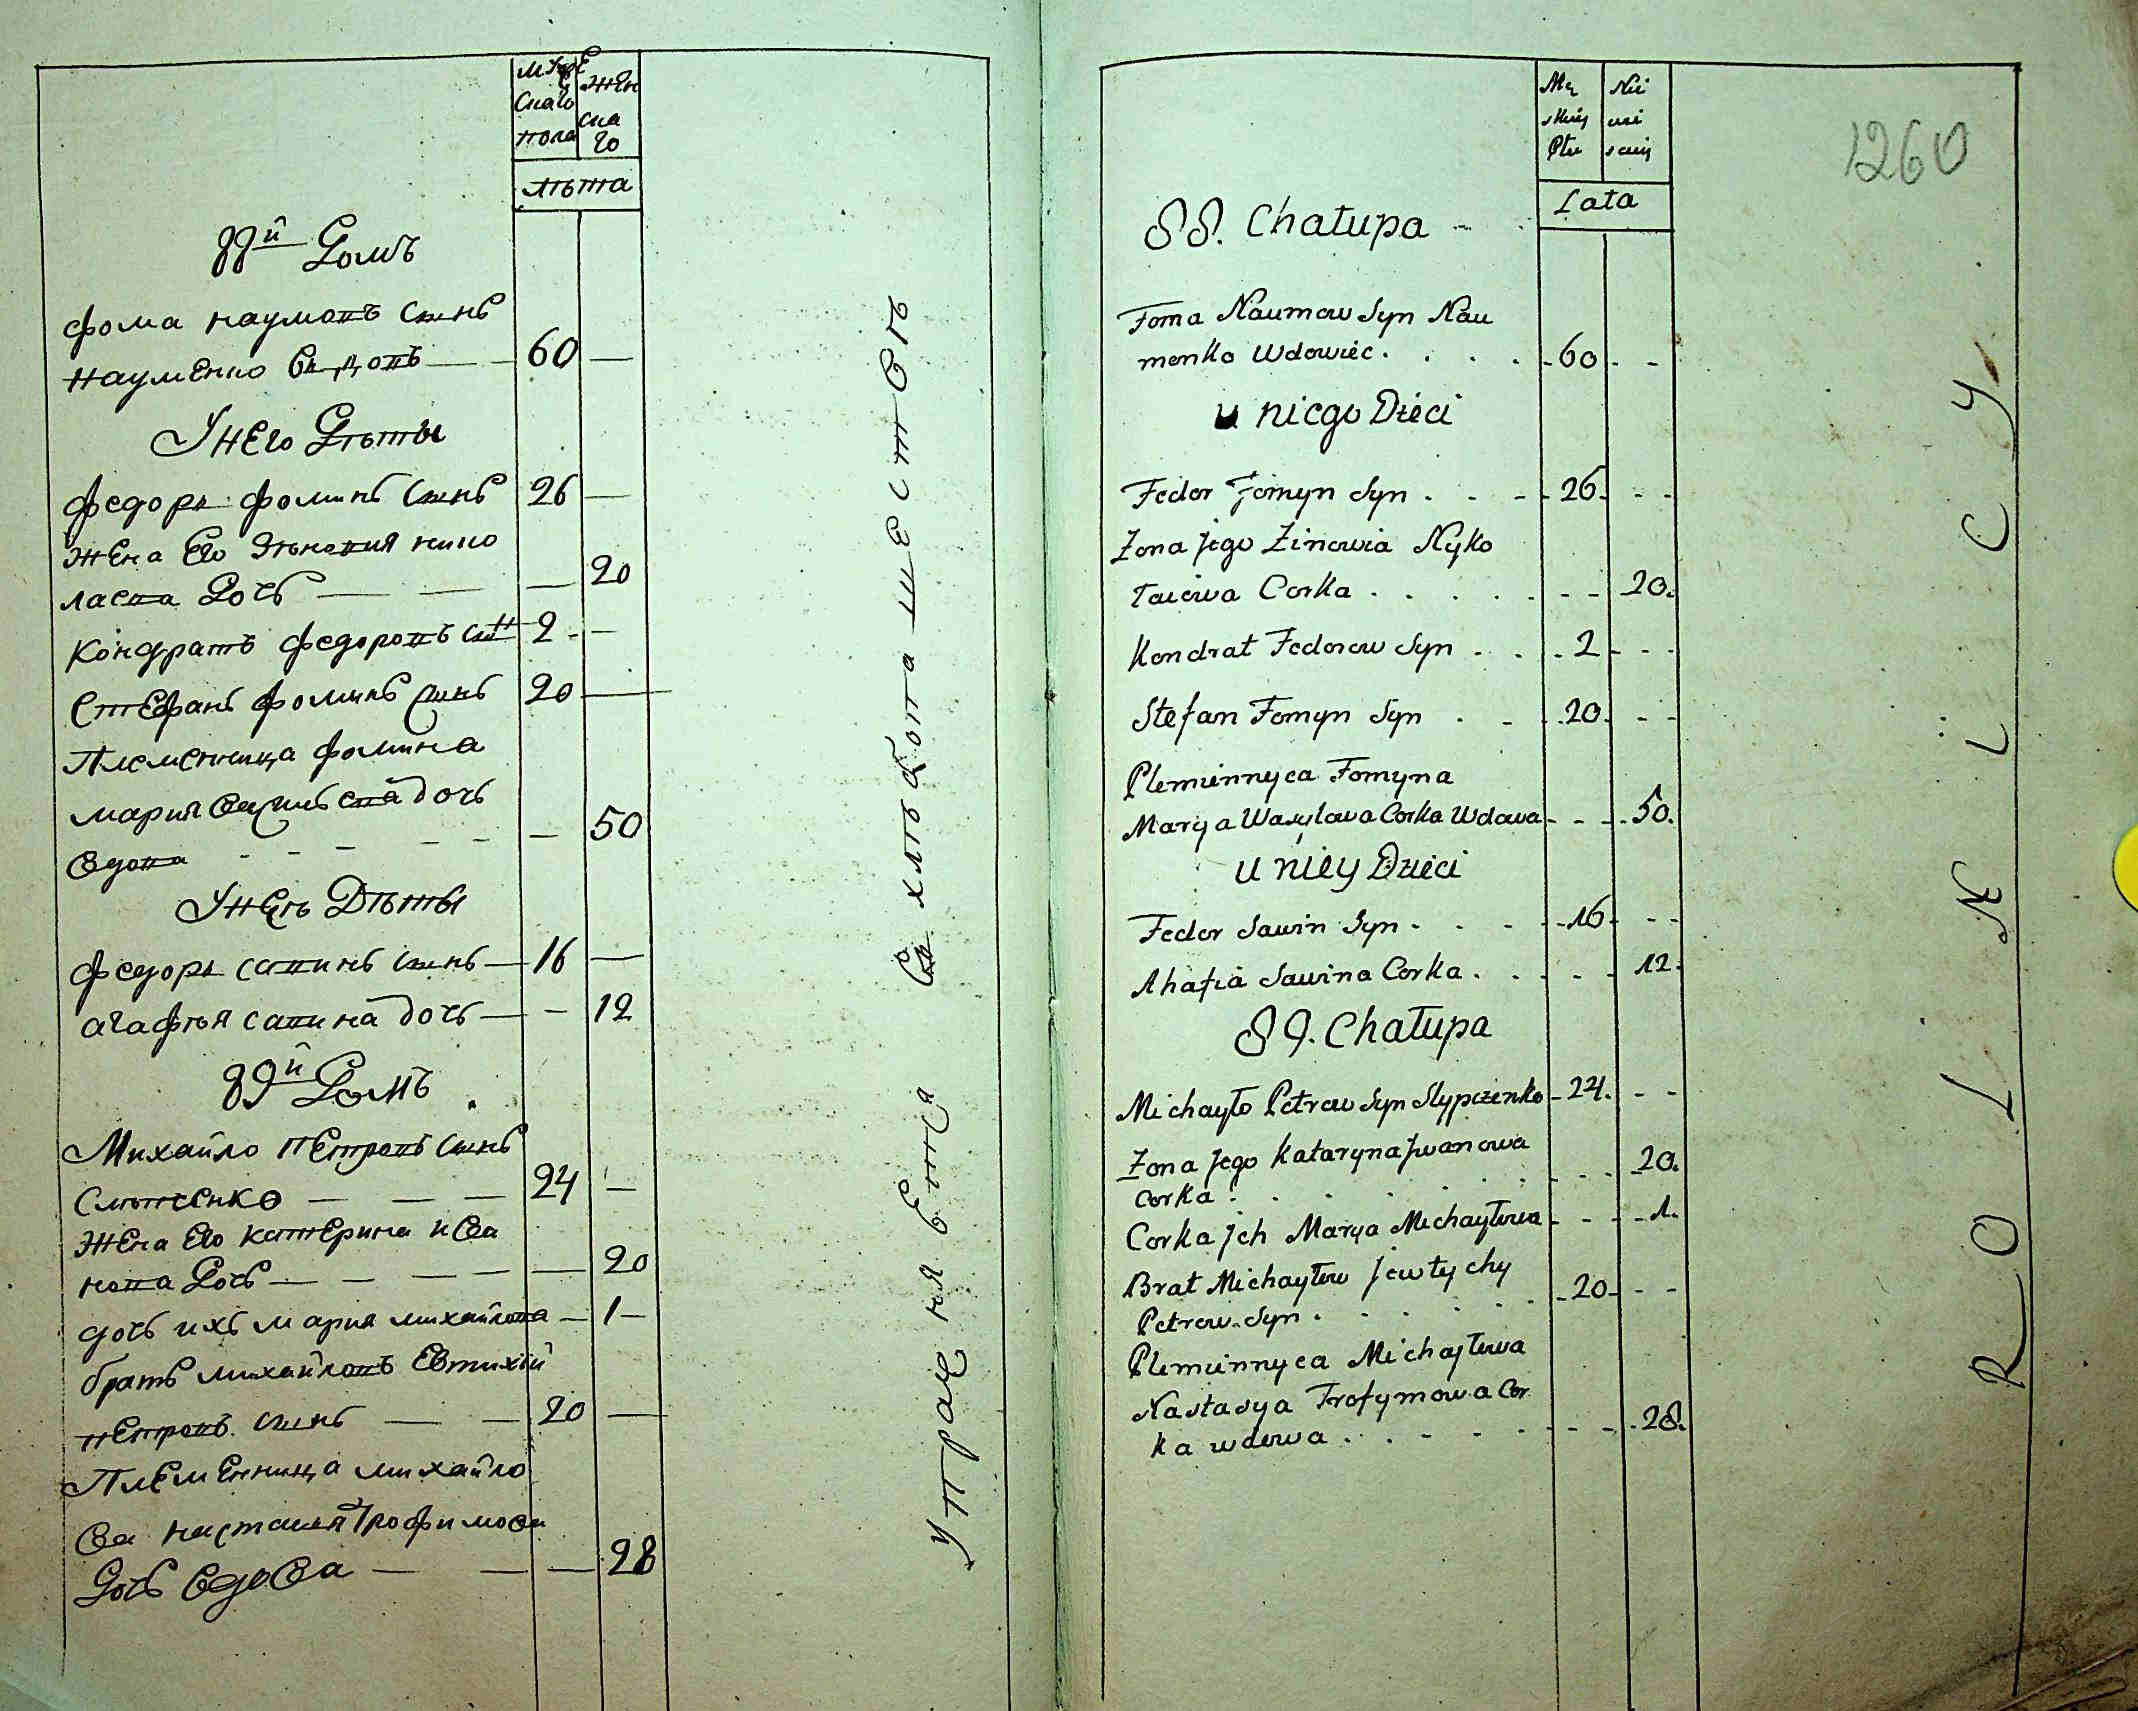 мужескаго пола
женскаго
лѣта
88й Домъ
фома наумовъ сынъ
науменко вдовъ — 60 —
У него дѣты
федоръ фоминъ сынъ 26 —
жена его зѣновия нико
лаева дочь — — — 20
кондратъ федоровъ сынъ 2 - —
стефанъ фоминъ сынъ 20 —
Племенница фомина
мария василева дочь
вдова - - - - - — 50
У неѣ Дѣты
федоръ савинъ сынъ — 16 —
агафѣя савина дочь — - 12
89й Домъ
Михайло петровъ сынъ
24 —
жена его катерина ива
нова дочь — — — — — 20
дочь ихъ мария михайлова — 1 —
братъ михайловъ Евтихій
петровъ сынъ — — 20 —
Племенница михайло
ва настасия Трофимова
дочь вдова — — — 28
В хлѣбопашествѣ
упражняются
Męskiey Płci
Niewiesciey
Lata
1260
88. Chałupa
Foma Naumow Syn Nau
menko Wdowiec . . . . 60 - -
u niego Dzieci
Fedor Fomyn Syn . . - 26. - -
Zona jego Zinowia Nyko
łaiowa Corka . . . . . . - - 20.
Kondrat Fedorow Syn . . . 2 - - -
Stefan Fomyn Syn . - . 20. - -
Plemiennyca Fomyna
Marya Wasylowa Corka Wdowa - - - 50.
u niey Dzieci
Fedor Sawin Syn . . . - 16. - -
Ahafia Sawina Corka . . . . . 12.
89. Chałupa
Michayło Petrow Syn Slypczenko - 24. - -
Zona jego Kataryna Jwanowa
Corka . . . . . . . . 20.
Corka jch Marya Michayłowa - - - 1.
Brat Michayłow Jewtychy
Petrow Syn . . . . . 20 - - -
Plemiennyca Michayłowa
Nastasya Trofymowa Cor
ka wdowa . . - - - - - 28.
ROLNICY